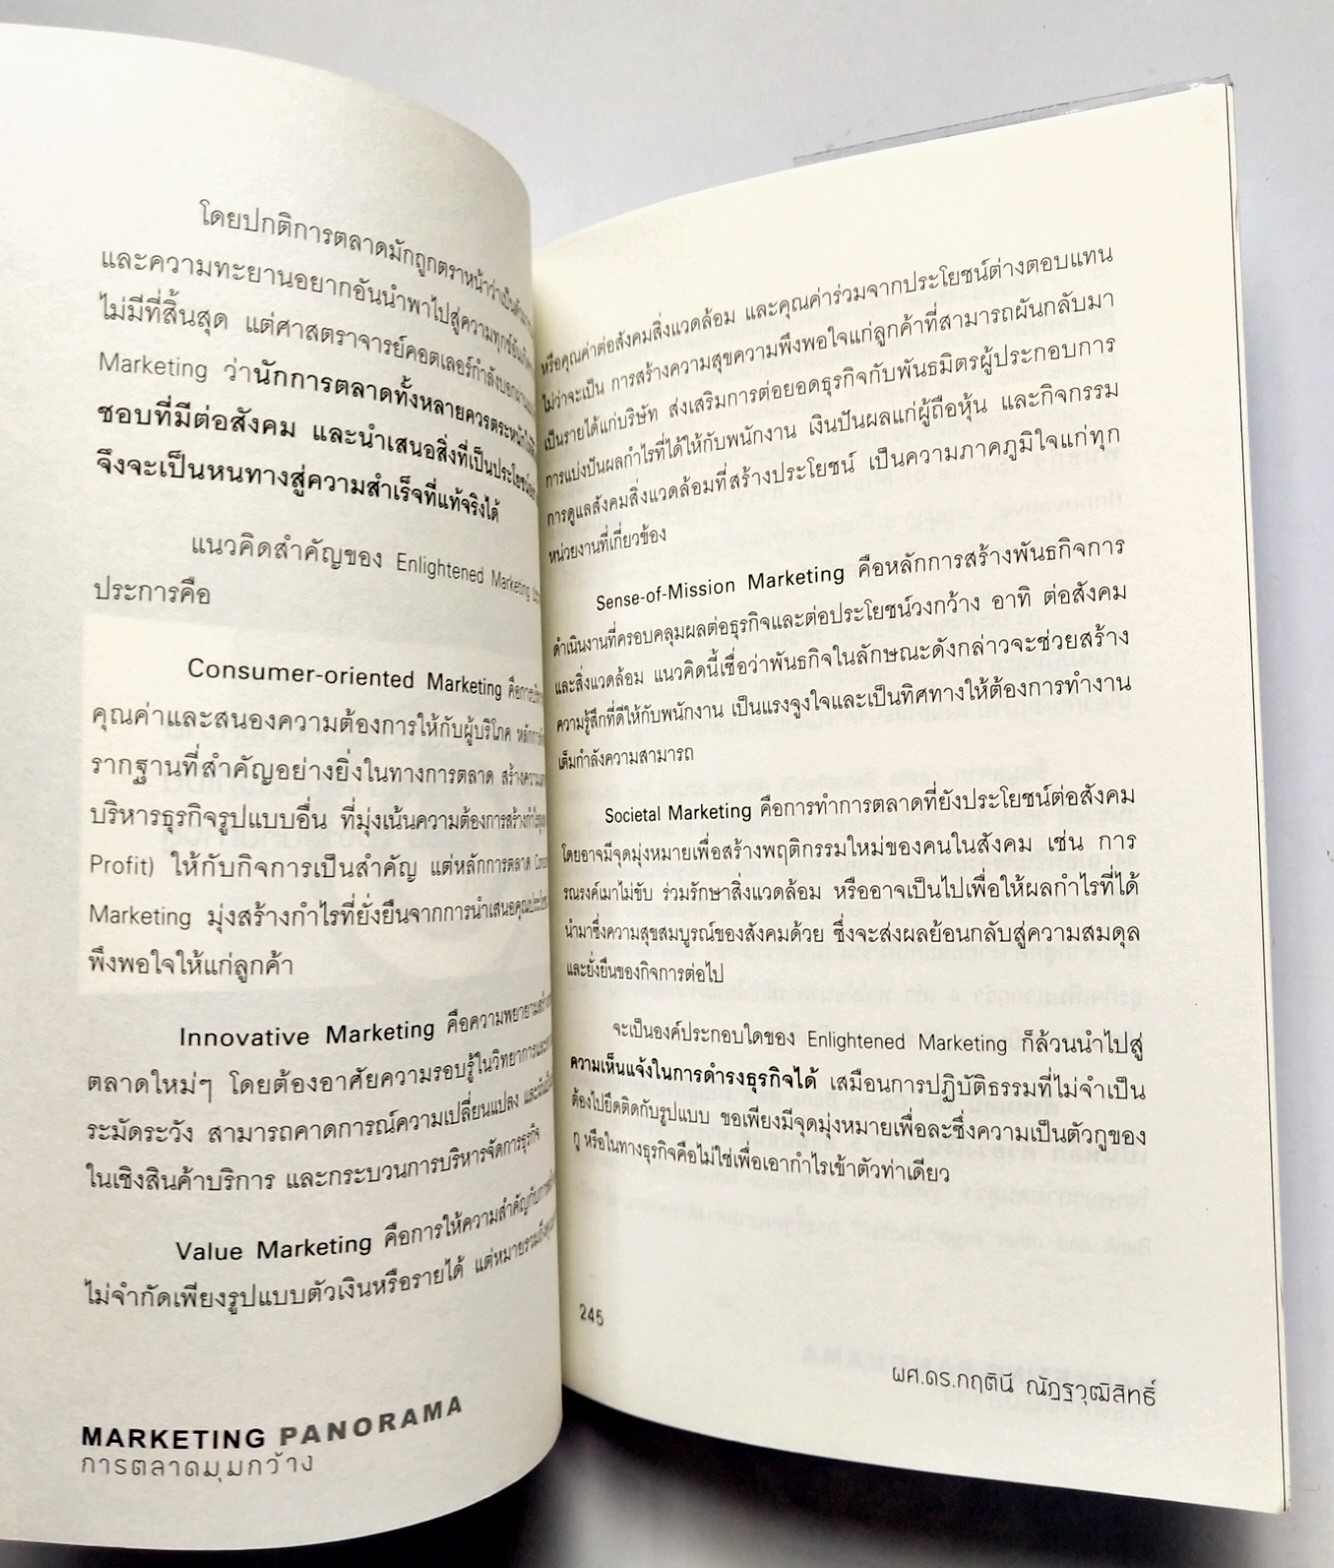 โดยปกติการตลาดมักถูกตราหน้าว่าเป็น
และความทะยานอยากอันนำพาไปสู่ความทุกข์อัน
ไม่มีที่สิ้นสุด แต่ศาสตราจารย์คอตเลอร์กำลังบอก
Marketing ว่านักการตลาดทั้งหลายควรตระหนัก
ชอบที่มีต่อสังคม และนำเสนอสิ่งที่เป็นประโยชน์
จึงจะเป็นหนทางสู่ความสำเร็จที่แท้จริงได้
แนวคิดสำคัญของ Enlightened Marketing
ประการคือ
Consumer-oriented Marketing คือการ
คุณค่าและสนองความต้องการให้กับผู้บริโภค
รากฐานที่สำคัญอย่างยิ่งในทางการตลาด
บริหารธุรกิจรูปแบบอื่น ที่มุ่งเน้นความต้องการสร้างกำไร
Profit) ให้กับกิจการเป็นสำคัญ แต่หลักการตลาด
Marketing มุ่งสร้างกำไรที่ยั่งยืนจากการนำเสนอคุณ
พึงพอใจให้แก่ลูกค้า
Innovative Marketing คือความพยายาม
ตลาดใหม่ๆ โดยต้องอาศัยความรอบรู้ในวิทยาการ
ระมัดระวัง สามารถคาดการณ์ความเปลี่ยนแปลง
ในเชิงสินค้าบริการ และกระบวนการบริหารจัดการธุรกิจ
Value Marketing คือการให้ความสำคัญกับการ
ไม่จำกัดเพียงรูปแบบตัวเงินหรือรายได้ แต่หมายรวมถึง
MARKETING PANORAMA
การตลาดมุมกว้าง
หรือคุณค่าต่อสังคมสิ่งแวดล้อม และคุณค่าร่วมจากประโยชน์ต่างตอบแทน
ไม่ว่าจะเป็น การสร้างความสุขความพึงพอใจแก่ลูกค้าที่สามารถผันกลับมา
เป็นรายได้แก่บริษัท ส่งเสริมการต่อยอดธุรกิจกับพันธมิตรผู้ประกอบการ
การแบ่งปันผลกำไรที่ได้ให้กับพนักงาน เงินปันผลแก่ผู้ถือหุ้น และกิจกรรม
การดูแลสังคมสิ่งแวดล้อมที่สร้างประโยชน์ เป็นความภาคภูมิใจแก่ทุก
หน่วยงานที่เกี่ยวข้อง
Sense-of-Mission Marketing คือหลักการสร้างพันธกิจการ
ดำเนินงานที่ครอบคลุมผลต่อธุรกิจและต่อประโยชน์วงกว้าง อาทิ ต่อสังคม
และสิ่งแวดล้อม แนวคิดนี้เชื่อว่าพันธกิจในลักษณะดังกล่าวจะช่วยสร้าง
ความรู้สึกที่ดีให้กับพนักงาน เป็นแรงจูงใจและเป็นทิศทางให้ต้องการทำงาน
เต็มกำลังความสามารถ
Societal Marketing คือการทำการตลาดที่ยังประโยชน์ต่อสังคม
โดยอาจมีจุดมุ่งหมายเพื่อสร้างพฤติกรรมใหม่ของคนในสังคม เช่น การ
รณรงค์เมาไม่ขับ ร่วมรักษาสิ่งแวดล้อม หรืออาจเป็นไปเพื่อให้ผลกำไรที่ได้
นำมาซึ่งความสุขสมบูรณ์ของสังคมด้วย ซึ่งจะส่งผลย้อนกลับสู่ความสมดุล
และยั่งยืนของกิจการต่อไป
จะเป็นองค์ประกอบใดของ Enlightened Marketing ก็ล้วนนำไปสู่
ความเห็นแจ้งในการดำรงธุรกิจได้ เสมือนการปฏิบัติธรรมที่ไม่จำเป็น
ต้องไปยึดติดกับรูปแบบ ขอเพียงมีจุดมุ่งหมายเพื่อละซึ่งความเป็นตัวกูของ
กู หรือในทางธุรกิจคือไม่ใช่เพื่อเอากำไรเข้าตัวท่าเดียว
245
ผศ.ดร.กฤตินี ณัฏฐวุฒิสิทธิ์